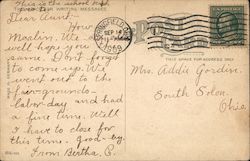 This is the school
THIS SPACE FOR WRITING MESSAGES
Dear Aunt:-
How
Marlin. We
well hope you
same. Don't forget
to come up. We
went out to the
fair-grounds-
labor-day and had
a fine time. Well
I have to close for
this time. good-by.
From Bertha C.
SPRINGFIELD
SEP 14
1909
THIS SPACE FOR ADDRESS ONLY
Mrs. Addie Gordin.
South Solon.
Ohio.